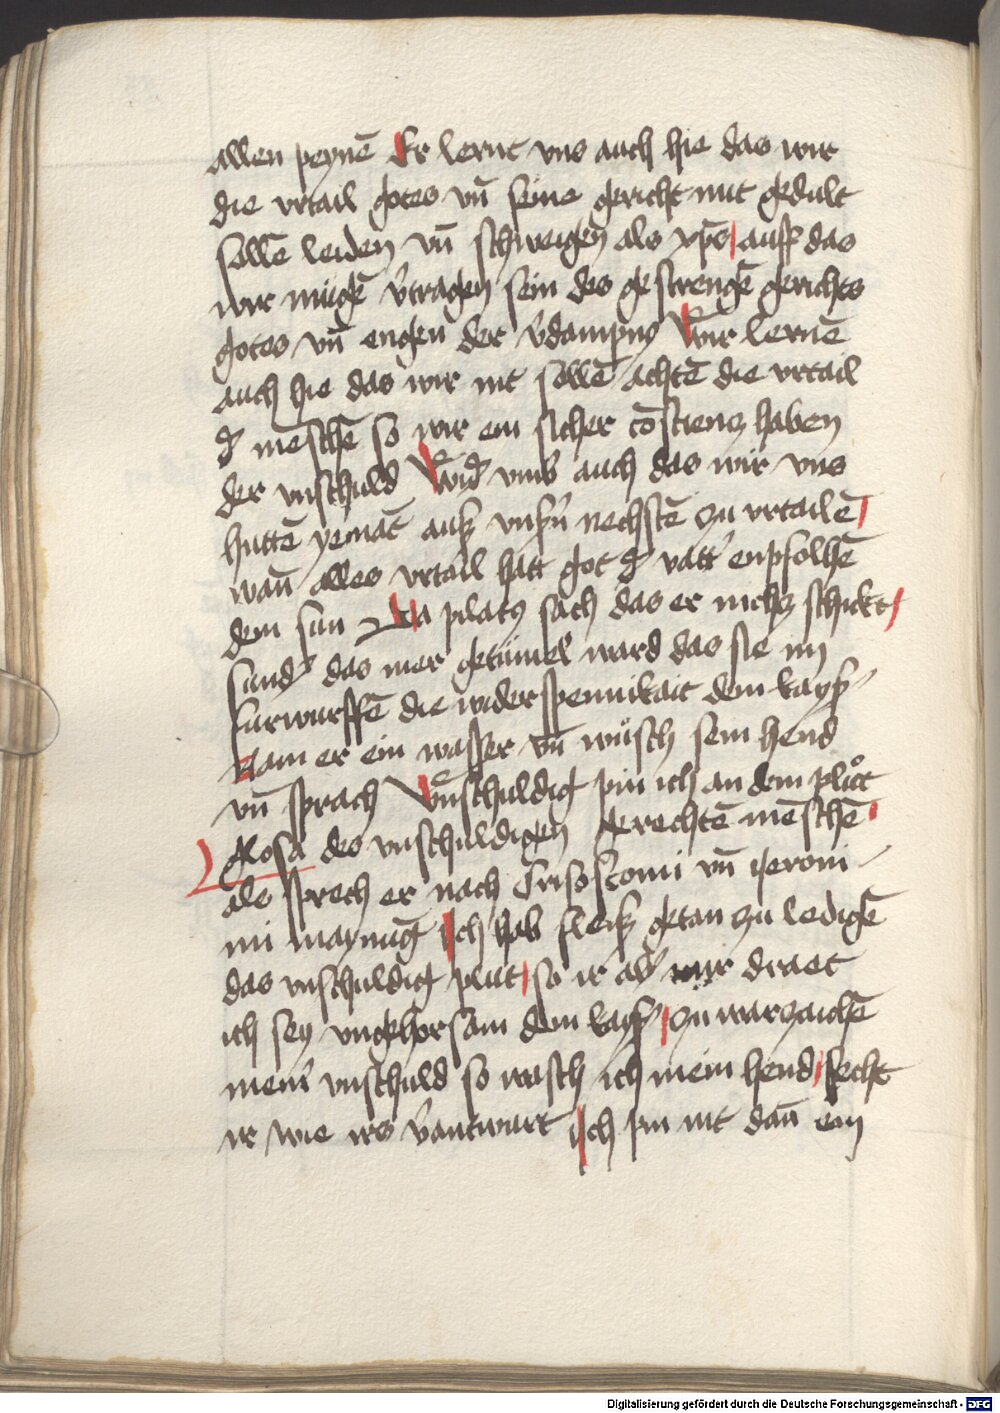 allen peynē Er lernt vns auch hie das wir
die vrtail gotes vn̄ seine gericht mit gedult
sollē leiden vn̄ schweigen̄ als xp̄s auff das
wir mügē v̓tragen sein des gestrengē gerichts
gotes vn̄ engen der v̓dampnꝰ Wir lernē
auch hie das wir nit sollē achtē die vrtail
d̓ meschē so wir ein sicher cōscienz haben
der vnschuld Wid̓ vmb auch das wir vns
huttē yemāt auß vnßn̓ nechstē zu vrtailē
wan̄ alles vrtail hatt got d̓ vatt̓ enpfolhē
dem sun Da pilatꝰ sach das er nichtz schickt
sund̓ das mer getümel ward das sie im
furwurffē die widerspennikait dem kayß̓
Nam er ein wasser vn̄ wůsch sein hend
vn̄ sprach Vnschuldig pin ich an dem plůt
Glosa des vnschuldigen gerechtē mēschē
als sprech er nach Crisostomi vn̄ Jeroni
mi maynūg Ich hab fleiß getan zu ledigē
das vnschuldig plut so ir ab̓ mir draet
ich sey vngehorsam dem kayß̓ zu warzaichē
mein̓ vnschuld so wasch ich mein hend secht
ir wie irs v̓antwurt Ich pin nit dan̄ ein
Digitalisierung gefördert durch die Deutsche Forschungsgemeinschaft - DFG